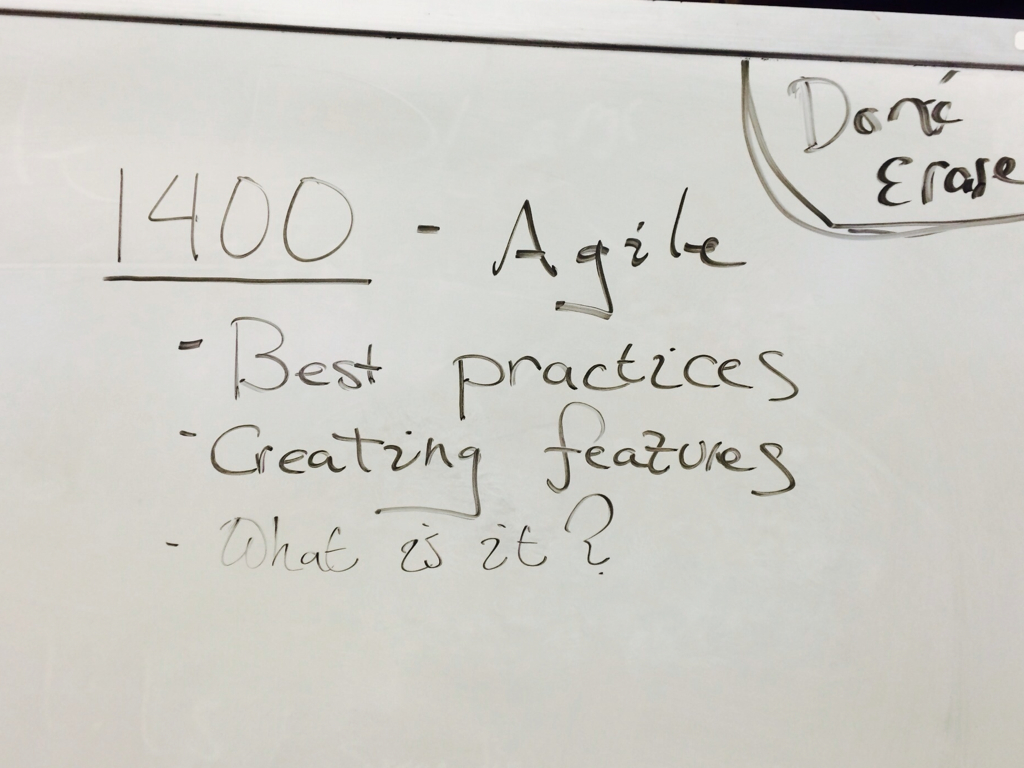 Don't
Erase
1400 - Agile
- Best practices
- Creating features
- What is it?